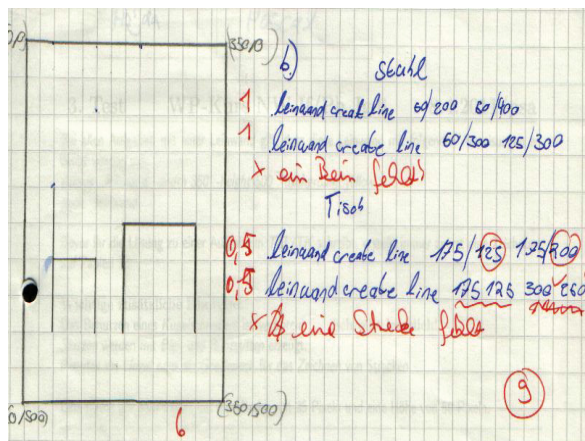 (350/0)
b.) Stuhl
1 leinwand create line 60/200 60/400
1 leinwand create line 60/300 125/300
x ein Bein fehlt
Tisch
0,5 leinwand create line 175/125 175/200
0,5 leinwand create line 175 125 300
x eine Strecke fehlt
9
0/500) (350/500)
6